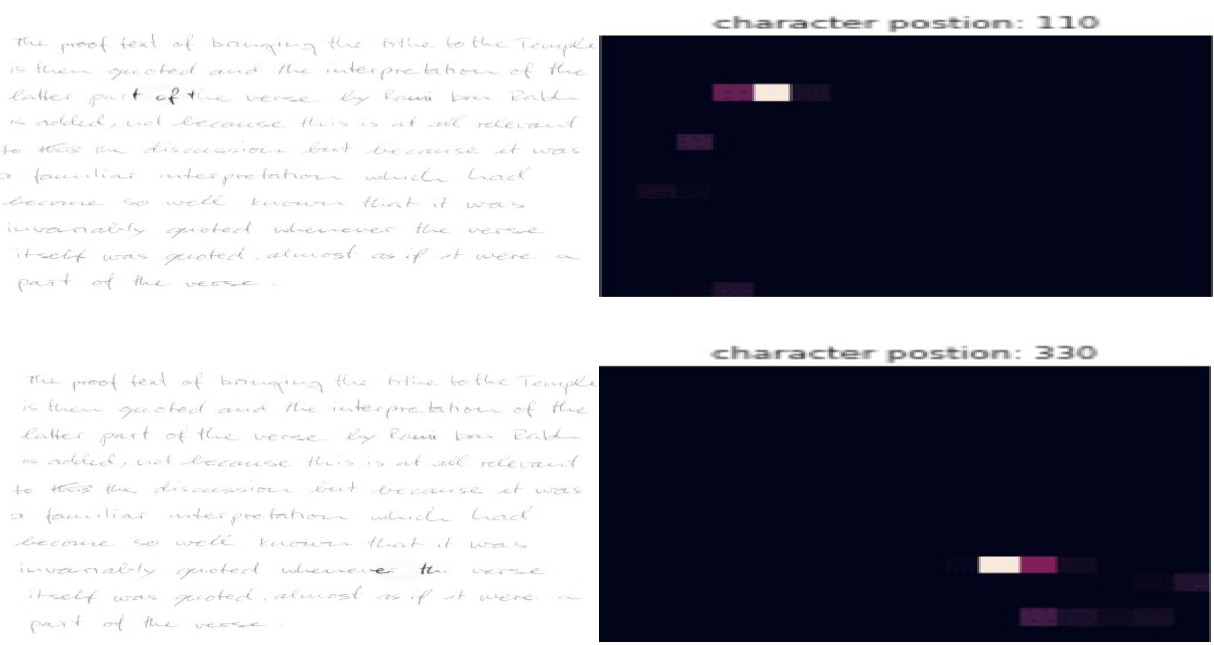 character postion: 110
The proof text of bringing the tithe to the Temple
is then quoted and the interpretation of the
latter part of the verse by Rami bar
is added, not because this is at all relevant
to the discussion but because it was
a familiar interpretation which had
become so well known that it was
invariably quoted whenever the verse
itself was quoted, almost as if it were a
part of the verse.
character postion: 330
The proof text of bringing the tithe to the Temple
is then quoted and the interpretation of the
latter part of the verse by Rami bar
is added, not because this is at all relevant
to the discussion but because it was
a familiar interpretation which had
become so well known that it was
invariably quoted whenever the verse
itself was quoted, almost as if it were a
part of the verse.